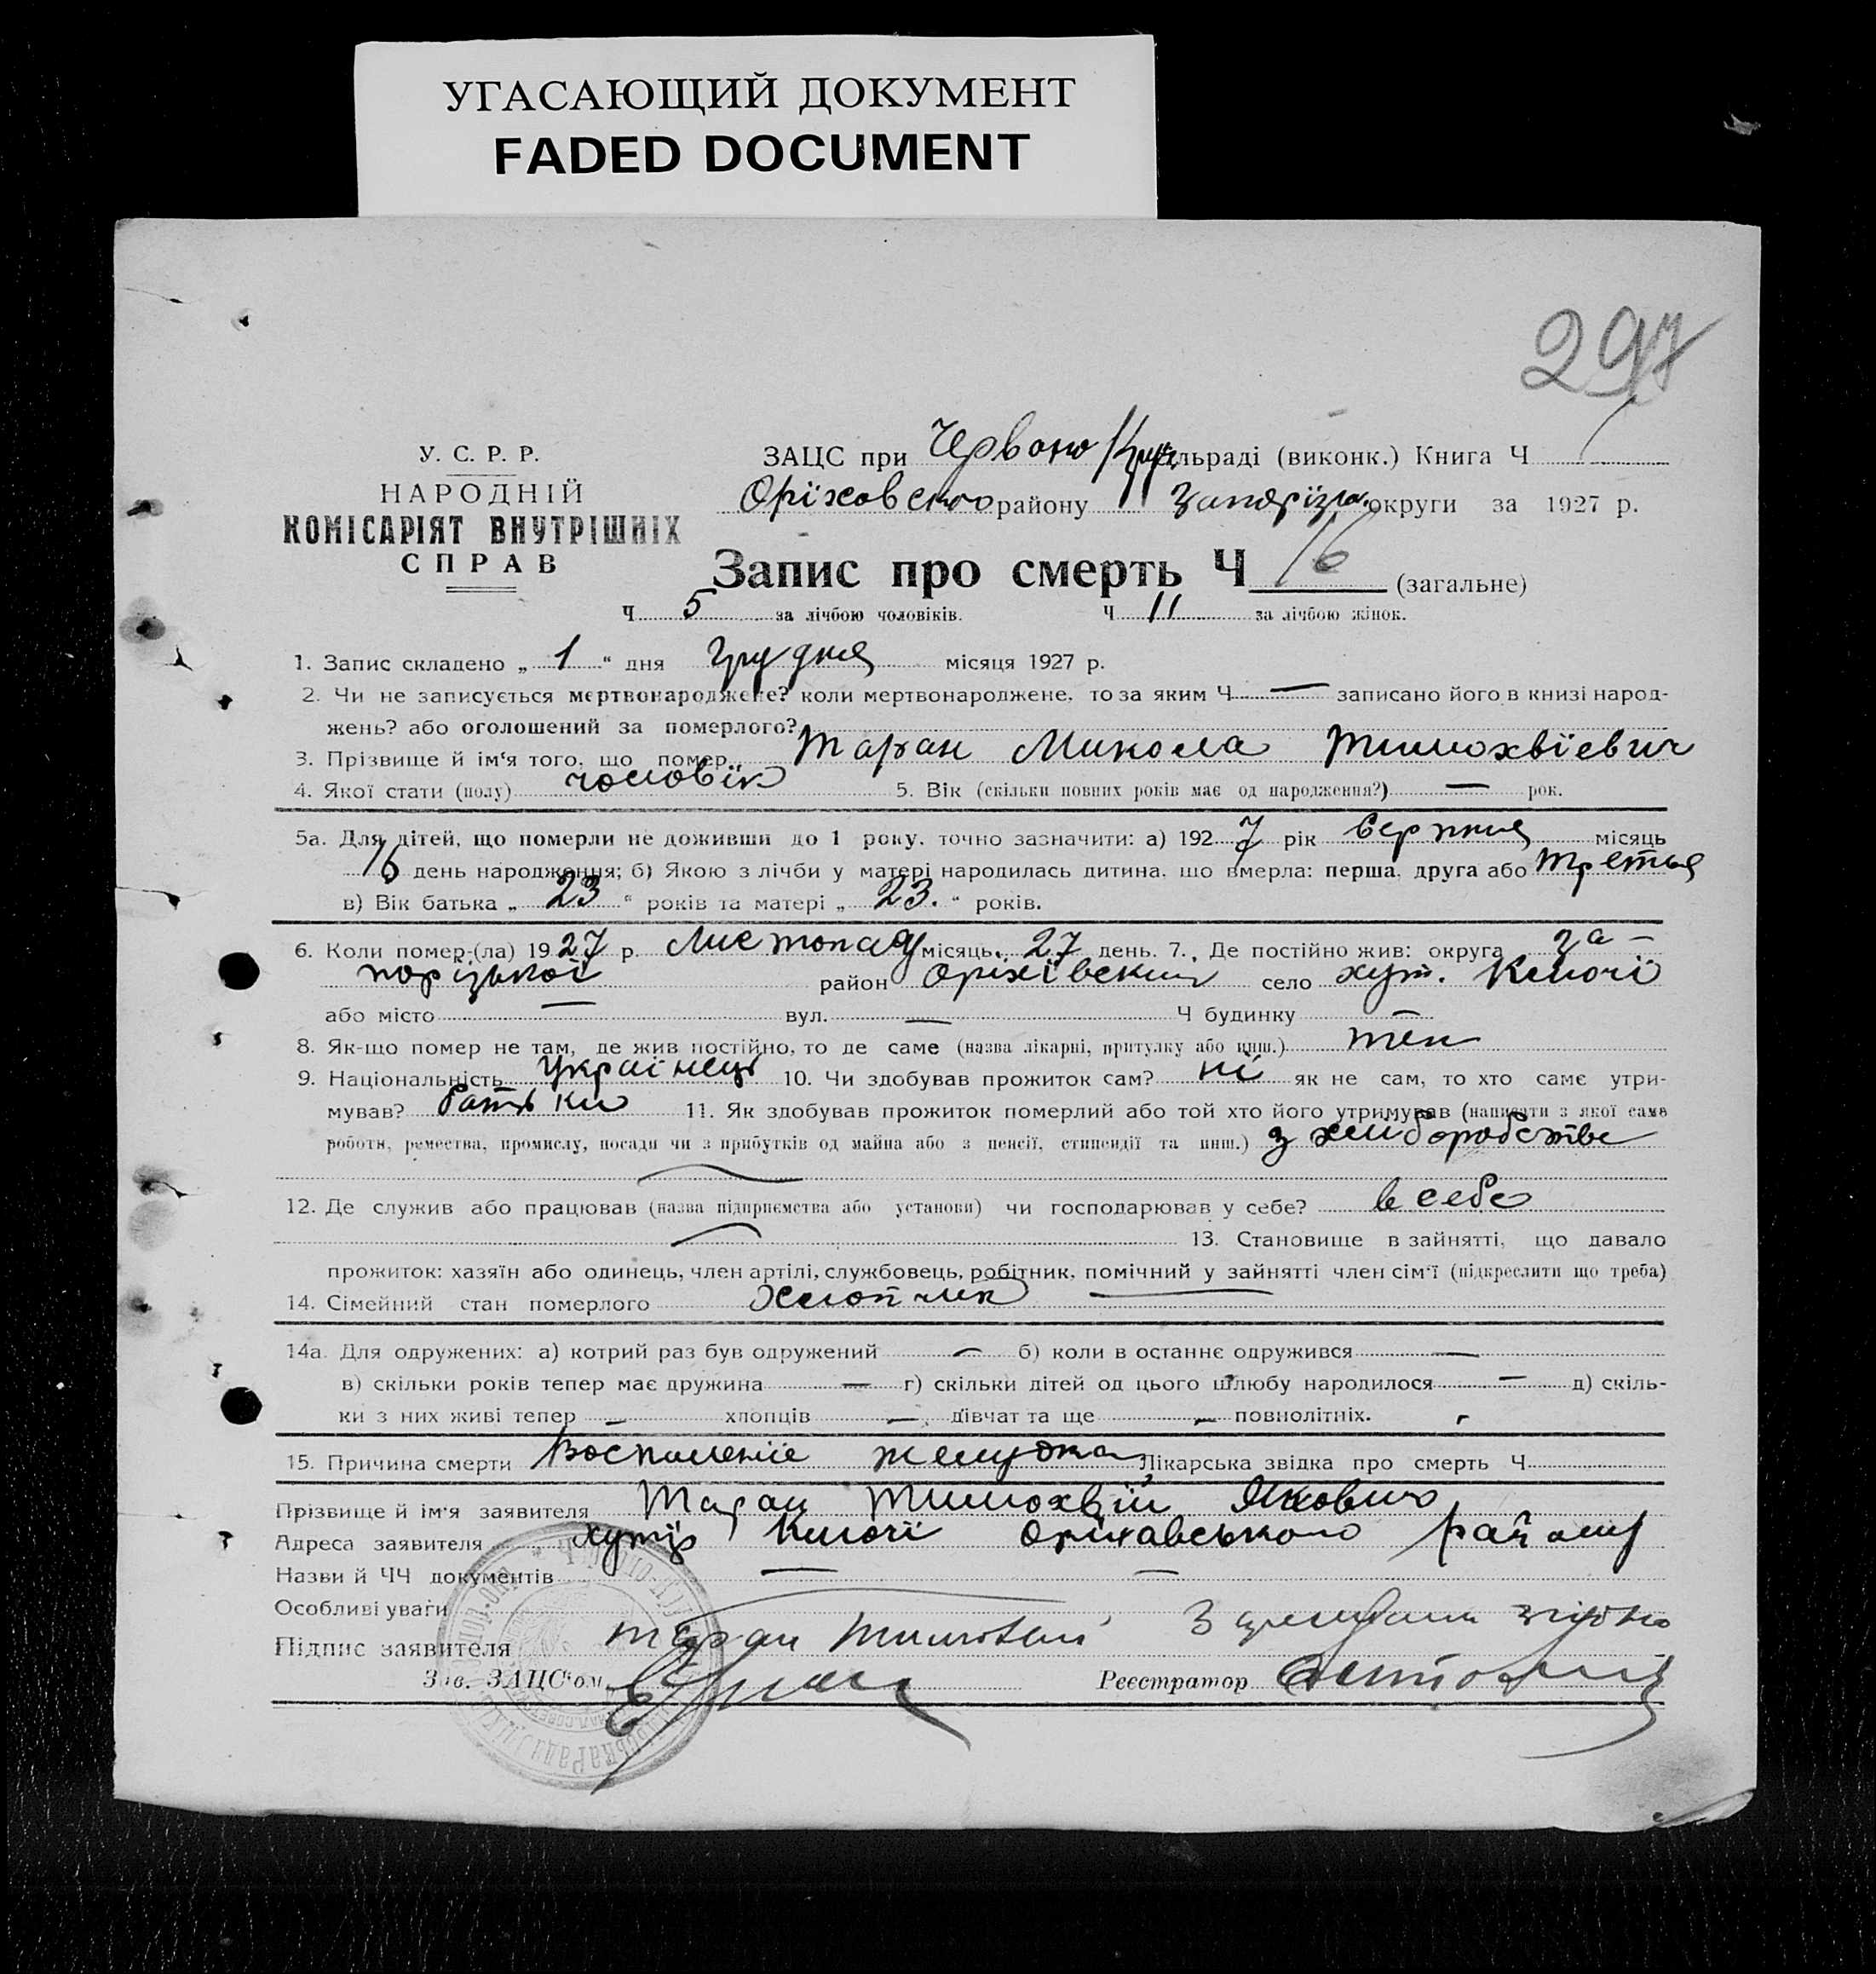 УГАСАЮЩИЙ ДОКУМЕНТ
FADED DOCUMENT
297
У. С. Р. Р.
НАРОДНІЙ
КОМІСАРІЯТ ВНУТРІШНІХ
СПРАВ
ЗАЦС при Червоно сільраді (виконк.) Книга Ч
Оріховского району Запоріз. округи за 1927 р.
Запис про смерть Ч 16 (загальне)
Ч 5 за лічбою чоловіків. Ч 11 за лічбою жінок.
1. Запис складено „ 1 “ дня грудня місяця 1927 р.
2. Чи не записується мертвонароджене? коли мертвонароджене, то за яким Ч — записано його в книзі народ-
жень? або оголошений за померлого?
3. Прізвище й ім‘я того, що помер Таран Микола Тимохвієвич
4. Якої стати (полу) чоловік 5. Вік (скільки повних років має од народження?) — рок.
5а. Для дітей, що померли не доживши до 1 року, точно зазначити: а) 1927 рік серпня місяць
16 день народження; б) Якою з лічби у матері народилась дитина, що вмерла: перша, друга або третья
в) Вік батька „ 23 “ років та матері „ 23. “ років.
6. Коли помер-(ла) 1927 р. Листопад місяць, 27 день. 7. Де постійно жив: округа За-
порізької район Оріхівский село хут. Ключі
або місто — вул. — Ч будинку —
8. Як-що помер не там, де жив постійно, то де саме (назва лікарні, притулку або инш.) теп
9. Національність Українець 10. Чи здобував прожиток сам? ні як не сам, то хто саме утри-
мував? батьки 11. Як здобував прожиток померлий або той хто його утримував (написати з якої саме
роботи, ремества, промислу, посади чи з прибутків од майна або з пенсії, стипендії та инш.) з хлиборобстве
12. Де служив або працював (назва підприємства або установи) чи господарював у себе? в себе
13. Становище в зайнятті, що давало
прожиток: хазяїн або одинець, член артілі, службовець, робітник, помічний у зайнятті член сім‘ї (підкреслити що треба)
14. Сімейний стан померлого Хлопчик
14а. Для одружених: а) котрий раз був одружений — б) коли в останнє одружився —
в) скільки років тепер має дружина — г) скільки дітей од цього шлюбу народилося — д) скіль-
ки з них живі тепер — хлопців — дівчат та ще — повнолітніх.
15. Причина смерти Воспаленіе желудка Лікарська звідка про смерть Ч
Прізвище й ім‘я заявителя Таран Тимохвій Якович
Адреса заявителя хутір Ключі Оріхавського району
Назви й ЧЧ документів — —
Особливі уваги
Підпис заявителя Таран Тимохвій З згідно
Зав. ЗАЦС‘ом Реєстратор